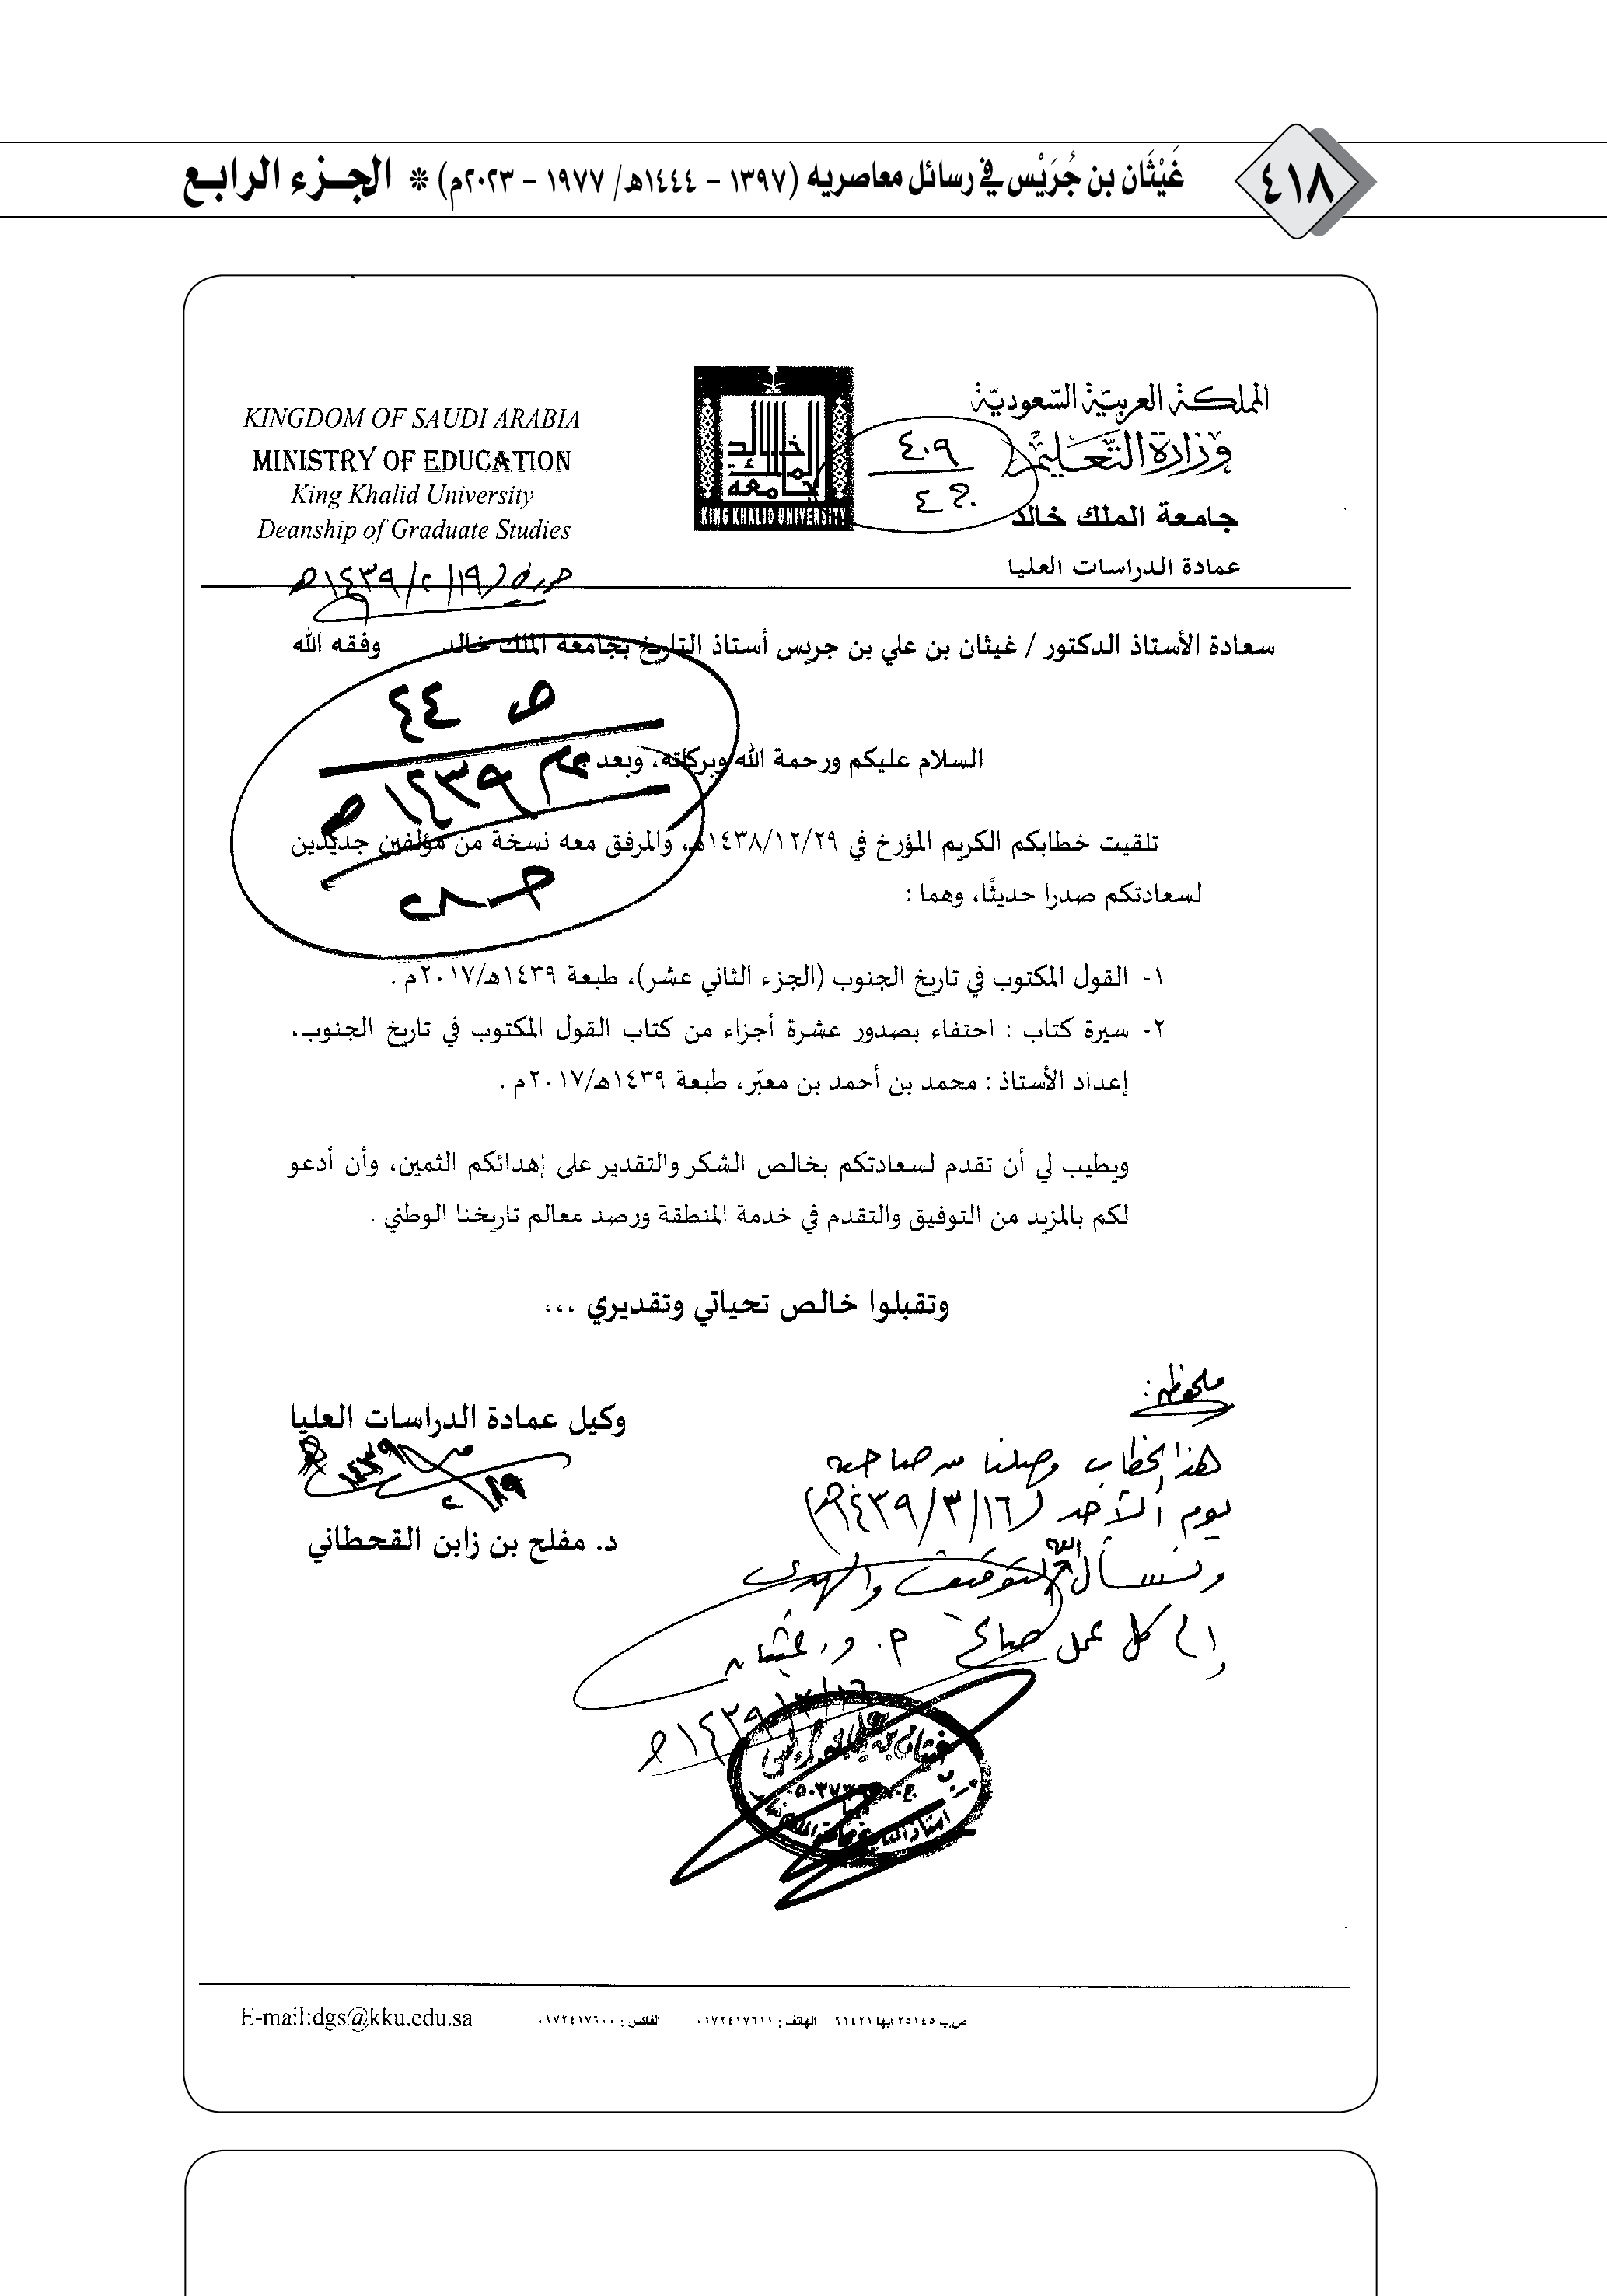 ٤١٨
غَيْثَان بن جُرَيْس في رسائل معاصريه (١٣٩٧ - ١٤٤٤هـ/ ١٩٧٧ - ٢٠٢٣م) * الجزء الرابع
المملكة العربيّة السّعوديّة
وزارة التّعليم
جامعة الملك خالد
عمادة الدراسات العليا
٤٠٩
جامعة الملك خالد
KING KHALID UNIVERSITY
KINGDOM OF SAUDI ARABIA
MINISTRY OF EDUCATION
King Khalid University
Deanship of Graduate Studies
١٩/٢/١٤٣٩هـ
سعادة الأستاذ الدكتور / غيثان بن علي بن جريس أستاذ التاريخ بجامعة الملك خالد وفقه الله
ص ٤٤
١٤٣٩هـ
السلام عليكم ورحمة الله وبركاته، وبعد
تلقيت خطابكم الكريم المؤرخ في ١٤٣٨/١٢/٢٩هـ، والمرفق معه نسخة من مؤلفين جديدين
لسعادتكم صدرا حديثًا، وهما :
١- القول المكتوب في تاريخ الجنوب (الجزء الثاني عشر)، طبعة ١٤٣٩هـ/٢٠١٧م .
٢- سيرة كتاب : احتفاء بصدور عشرة أجزاء من كتاب القول المكتوب في تاريخ الجنوب،
إعداد الأستاذ : محمد بن أحمد بن معبّر، طبعة ١٤٣٩هـ/٢٠١٧م .
ويطيب لي أن تقدم لسعادتكم بخالص الشكر والتقدير على إهدائكم الثمين، وأن أدعو
لكم بالمزيد من التوفيق والتقدم في خدمة المنطقة ورصد معالم تاريخنا الوطني .
وتقبلوا خالص تحياتي وتقديري ،،،
وكيل عمادة الدراسات العليا
١٤٣٩
د. مفلح بن زابن القحطاني
ملحوظة :
هذا الخطاب وصلنا من صاحبه
يوم الأحد (١٦/٣/١٤٣٩هـ)
ونسأل الله التوفيق والهدى
إلى كل عمل صالح م. د. غيثان
١٦/٣/١٤٣٩هـ
غيثان بن علي بن جريس
أستاذ التاريخ بجامعة الملك خالد
ص.ب ٢٥١٤٥ ابها ٦١٤٢١ الهاتف : ٠١٧٢٤١٧٦١١ الفاكس : ٠١٧٢٤١٧٦٠٠
E-mail:dgs@kku.edu.sa